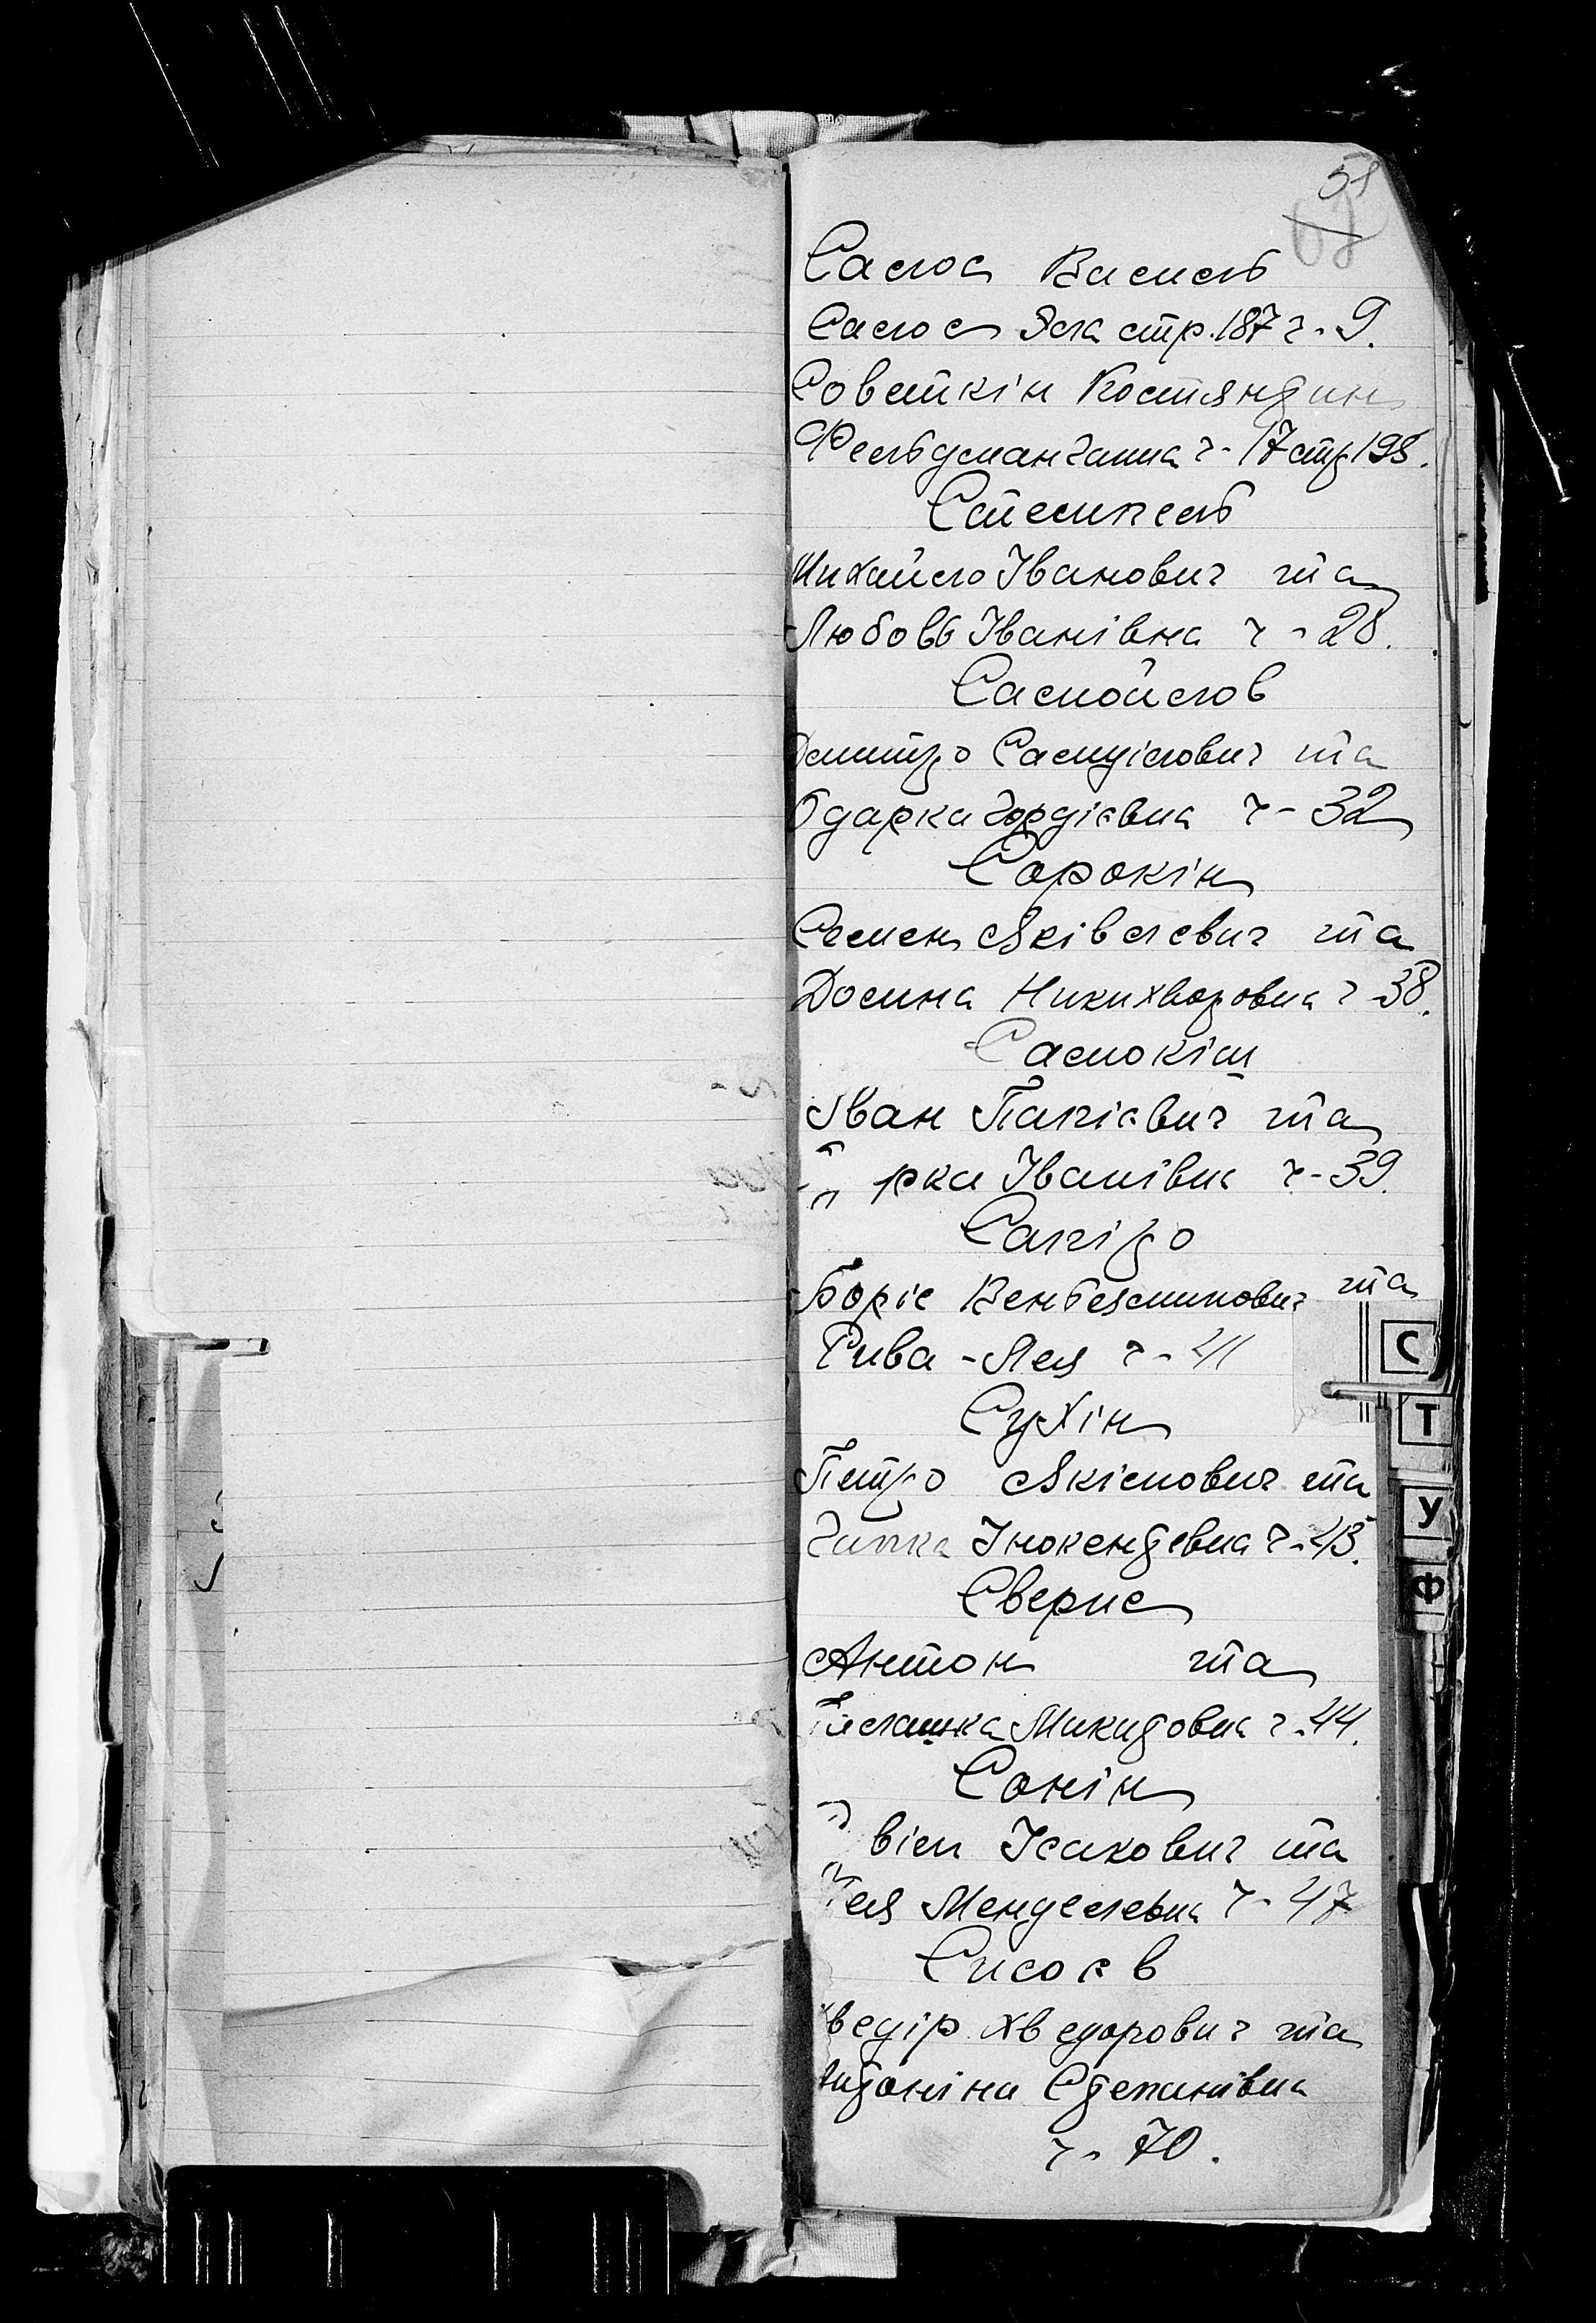 51
68
Салов Василь
Салов Яла стр. 187 ч-9.
Советкін Костянтин
Фельдман Ганна ч-17 стр 198.
Стемпель
Михайло Іванович та
Любовь Іванівна ч-28.
Самойлов
Дмитро Самуілович та
Одарка Гордієвна ч-32
Сорокін
Семен Яківлевич та
Домна Никихворовна ч-38.
Самокіш
Іван Папієвич та
рка Іванівна ч-39.
Сапіро
Боріс Веньеяминович та
Рива-Лея ч-41
Сухін
Петро Якімович та
Гапка Інокентевна ч-43.
Сверис
Антон та
Палашка Микитовна ч-44.
Сонін
віль Ісакович та
ея Менделевна ч-47
Сисоєв
ведір Хведорович та
нтоніна Степанівна
ч-70.
С
Т
У
Ф